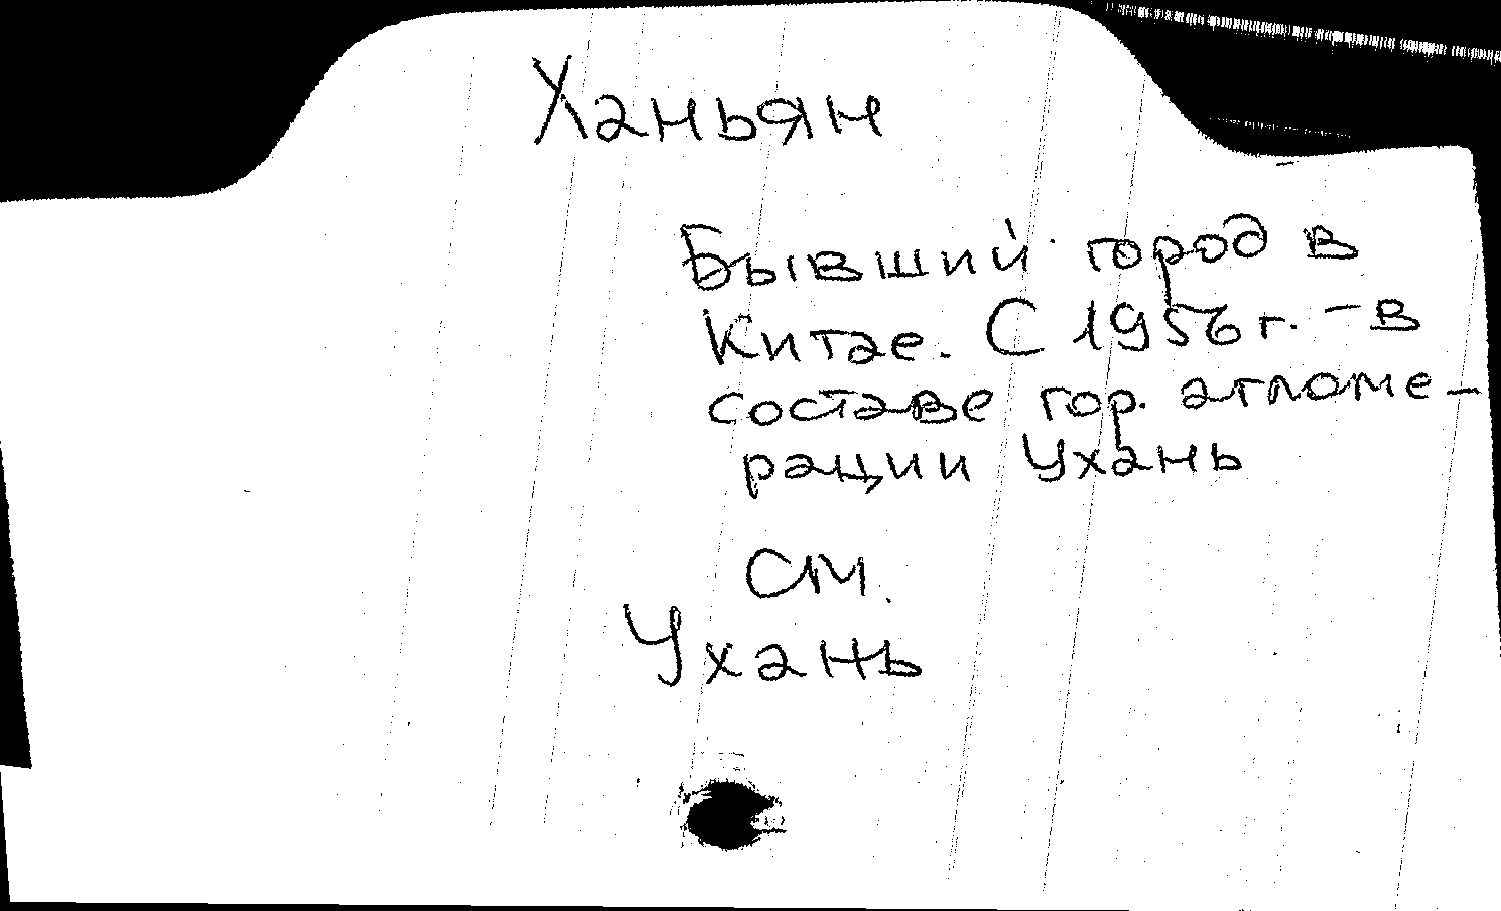 Ханьян
Бывший город в
Китае. С 1956 г. – в
составе гор. агломе-
рации Ухань
см.
Ухань